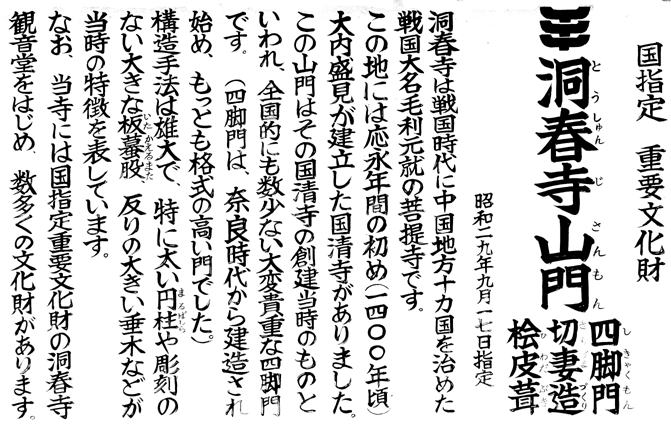 国指定 重要文化財
洞春寺山門
とうしゅんじさんもん
四脚門
しきゃくもん
切妻造
づくり
桧皮葺
ひわだぶき
昭和二九年九月一七日指定
洞春寺は戦国時代に中国地方十カ国を治めた
戦国大名毛利元就の菩提寺です。
この地には応永年間の初め(一四〇〇年頃)
大内盛見が建立した国清寺がありました。
この山門はその国清寺の創建当時のものと
いわれ、全国的にも数少ない大変貴重な四脚門
です。(四脚門は、奈良時代から建造され
始め、もっとも格式の高い門でした。)
構造手法は雄大で、特に太い円柱や彫刻の
まるばしら
ない大きな板蟇股、反りの大きい垂木などが
いたかえるまた
当時の特徴を表しています。
なお、当寺には国指定重要文化財の洞春寺
観音堂をはじめ、数多くの文化財があります。